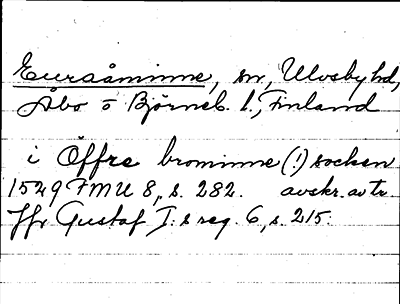 Euraåminne, sn, Ulvsby hd,
Åbo o Björneb. l., Finland
i Öffre brominne (!) socken
1549 FMU 8, s. 282. avskr. av tr.
Jfr Gustaf I:s reg. 6, s. 215.